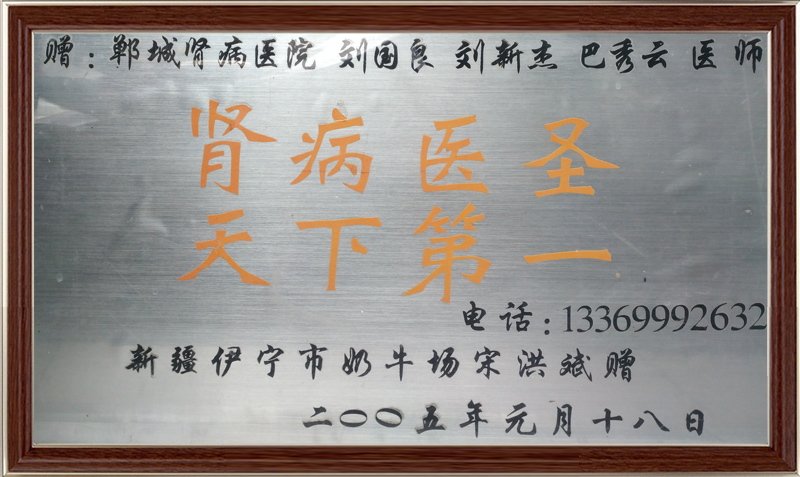 赠：郸城肾病医院 刘国良 刘新杰 巴秀云 医师
肾病医圣
天下第一
电话：13369992632
新疆伊宁市奶牛场宋洪斌赠
二〇〇五年元月十八日